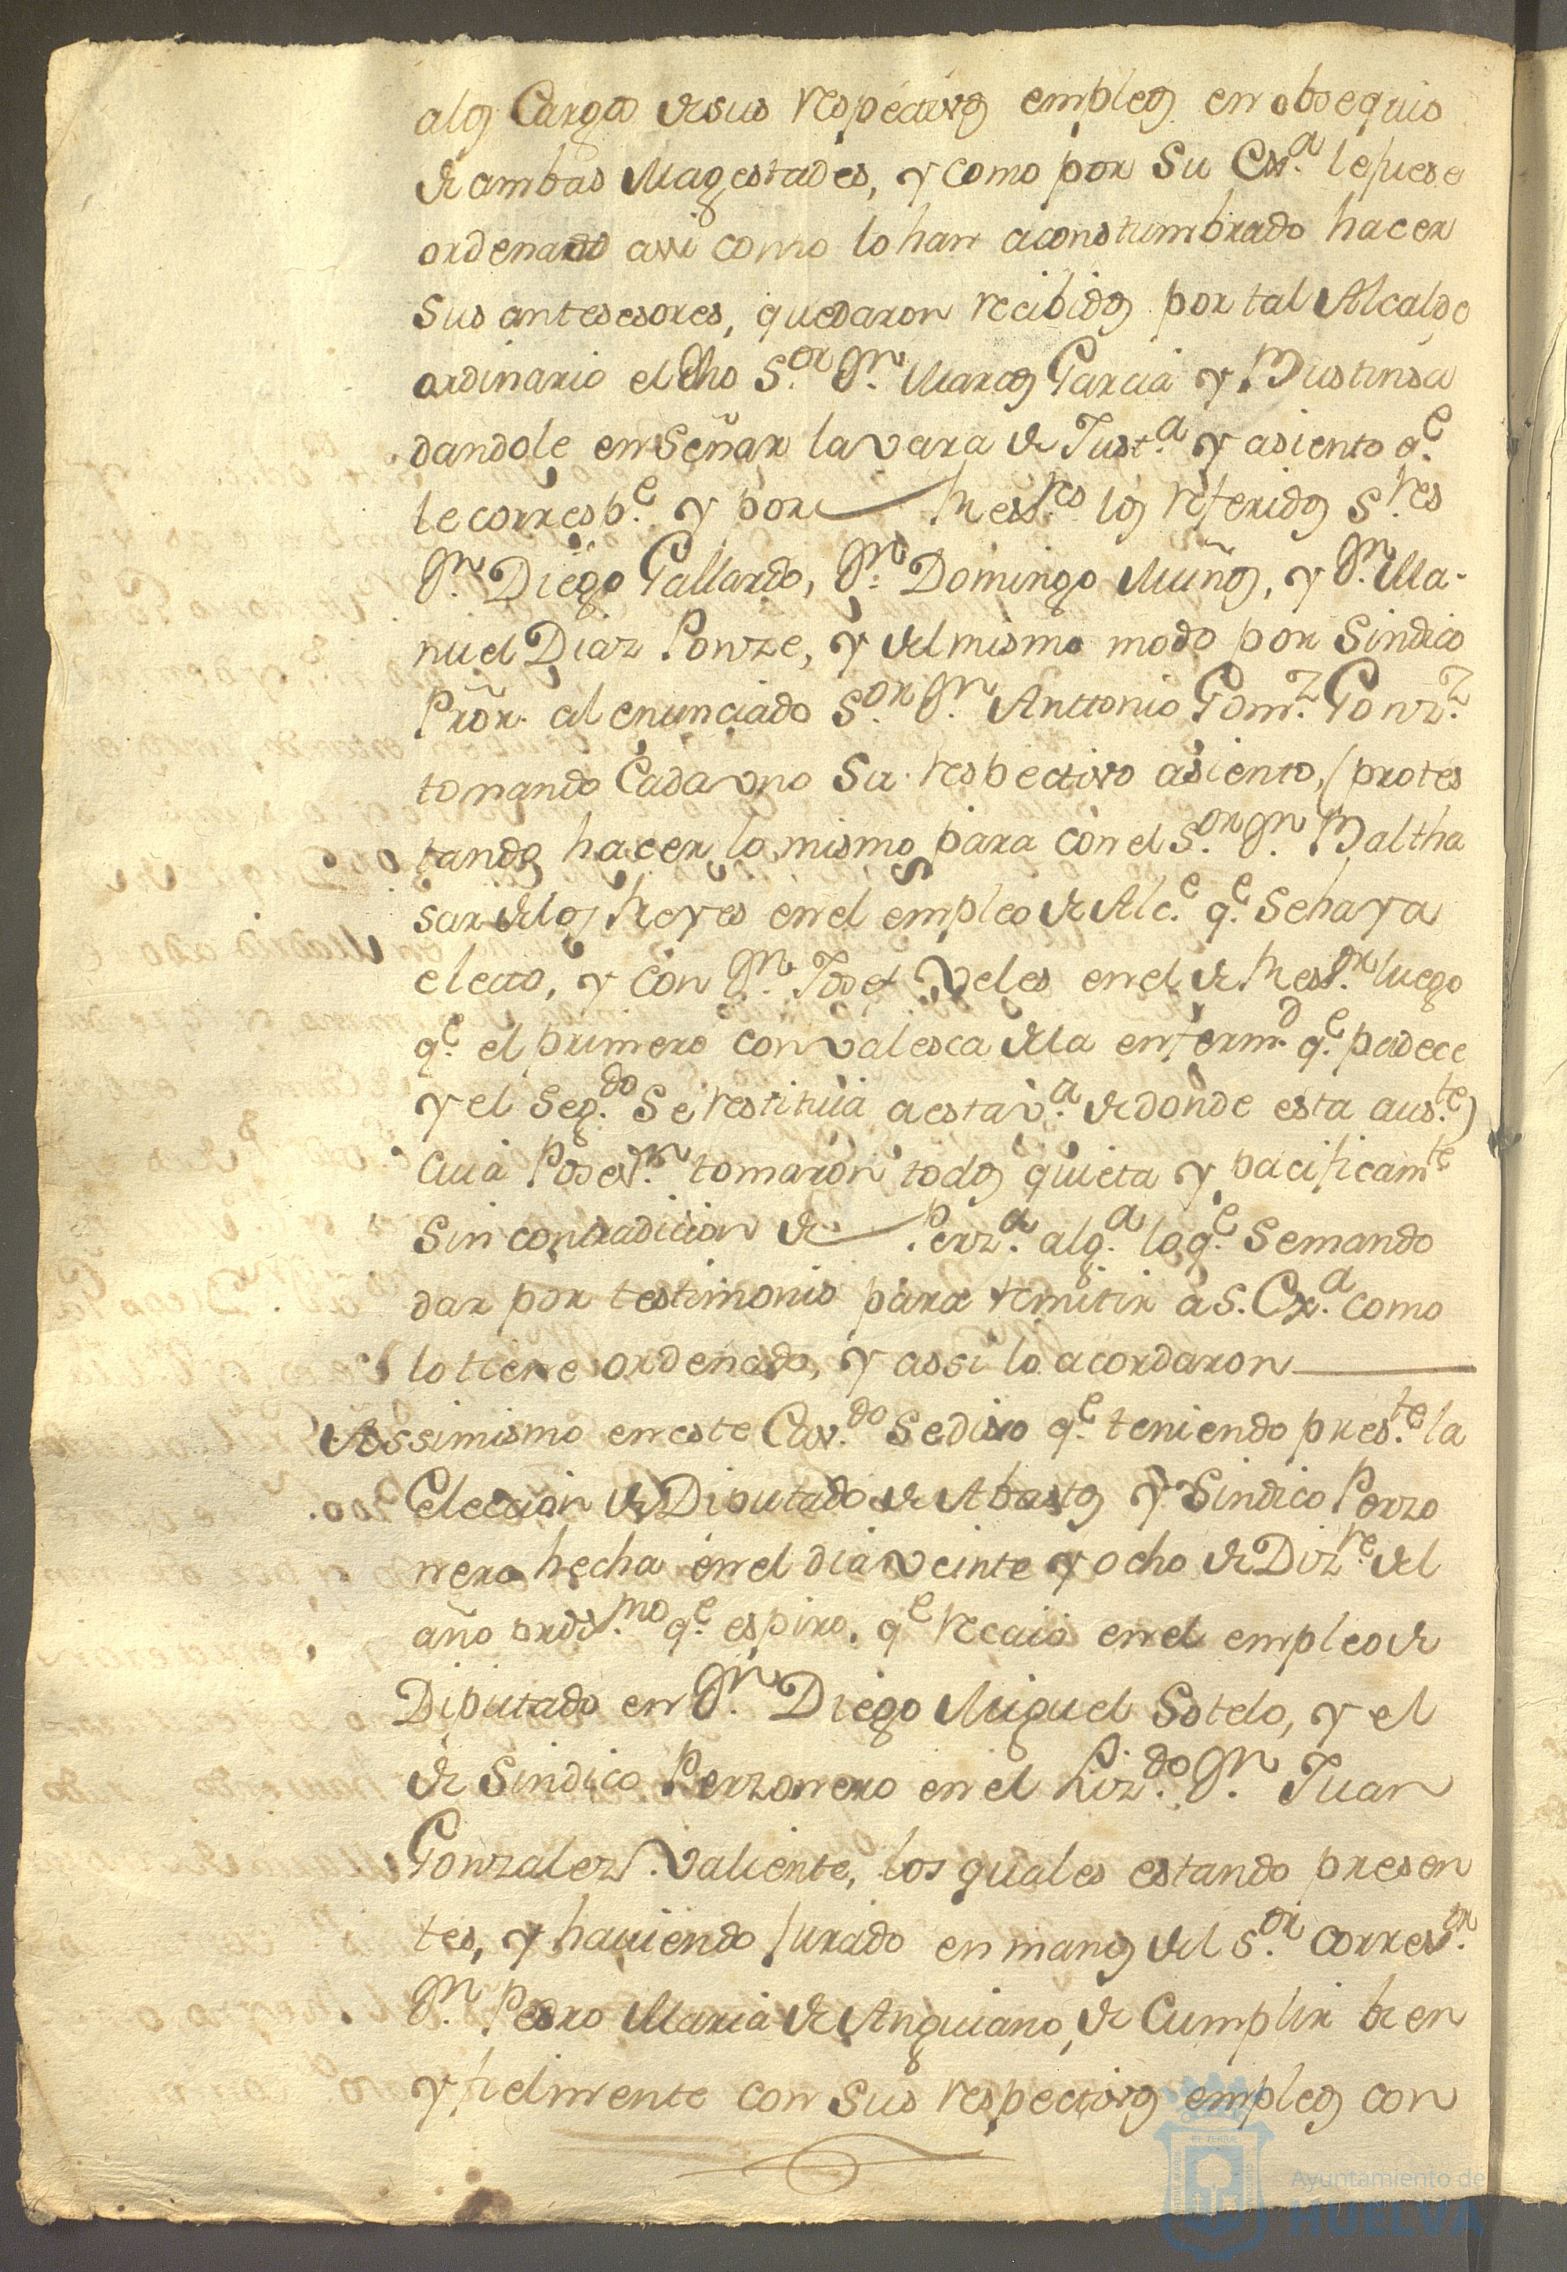 alos Cargos de sus respectivos empleos en obsequio
de ambas Magestades, y como por Su Exa. le fuese
ordenado assi como lo han aconstumbrado hacer
Sus antesesores, quedaron recibidos por tal Alcalde
ordinario el dho S.or Dn. Marcos Garcia y Bustinsa
dandole en Señar la vara de Just.a y asiento q.e
le corresp.e y por Rexs.res los referidos S.res
Dn. Diego Gallardo, Dn. Domingo Muños, y Dn. Ma-
nuel Diaz Ponze, y del mismo modo por Sindico
Prõr. al enunciado S.or Dn. Anttonio Gom.z Gonz.z
tomando Cada vno Su respectivo asiento, (protes
tandos hacer lo mismo para con el S.or Dn. Baltha
sar de los Reyes en el empleo de Alc.e q.e Se haya
electo, y con Dn. Josef Veles en el de Rex.or luego
q.e el primero convalesca de la enferm.d q.e padece
y el Seg.do Se restituia a esta v.a de donde esta aus.te)
Cuia Poses.n tomaron todos quieta y pacificam.te
Sin contradicion de Perz.a alg.a lo q.e Se mando
dar por testimonio para remitir a S. Ex.a como
lo tiene ordenado, y assi lo acordaron
Assimismo en este Cav.do Se dixo q.e teniendo pres.te la
Eleccion de Diputado de Abastos y Sindico Perzo
nero hecha en el dia veinte y ocho de Diz.re del
año prox.mo q.e espiro, q.e recaio en el empleo de
Diputado en Dn. Diego Miguel Sotelo, y el
de Sindico Perzonero en el Liz.do Dn. Juan
Gonzalez Valiente, los quales estando presen
tes, y haviendo Jurado en manos del S.or Correx.or
Dn. Pedro Maria de Anguiano, de Cumplir bien
y fielmente con Sus respectivos empleos con
Ayuntamiento de
HUELVA